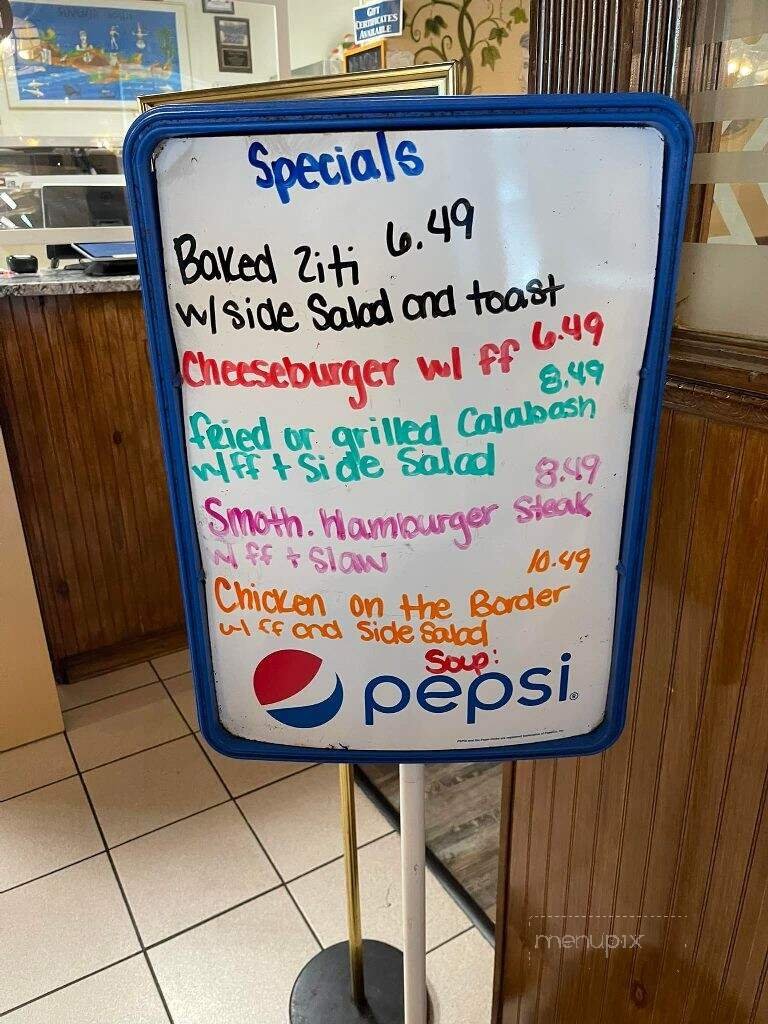 GIFT
CERTIFICATES
AVAILABLE
Specials
Baked Ziti 6.49
w/side Salad and toast
Cheeseburger w/ ff 6.49
8.49
fried or grilled Calabash
w/ff + Side Salad
8.49
Smoth. Hamburger Steak
w/ ff + Slaw
10.49
Chicken on the Border
w/ ff and Side Salad
Soup:
pepsi
menupix